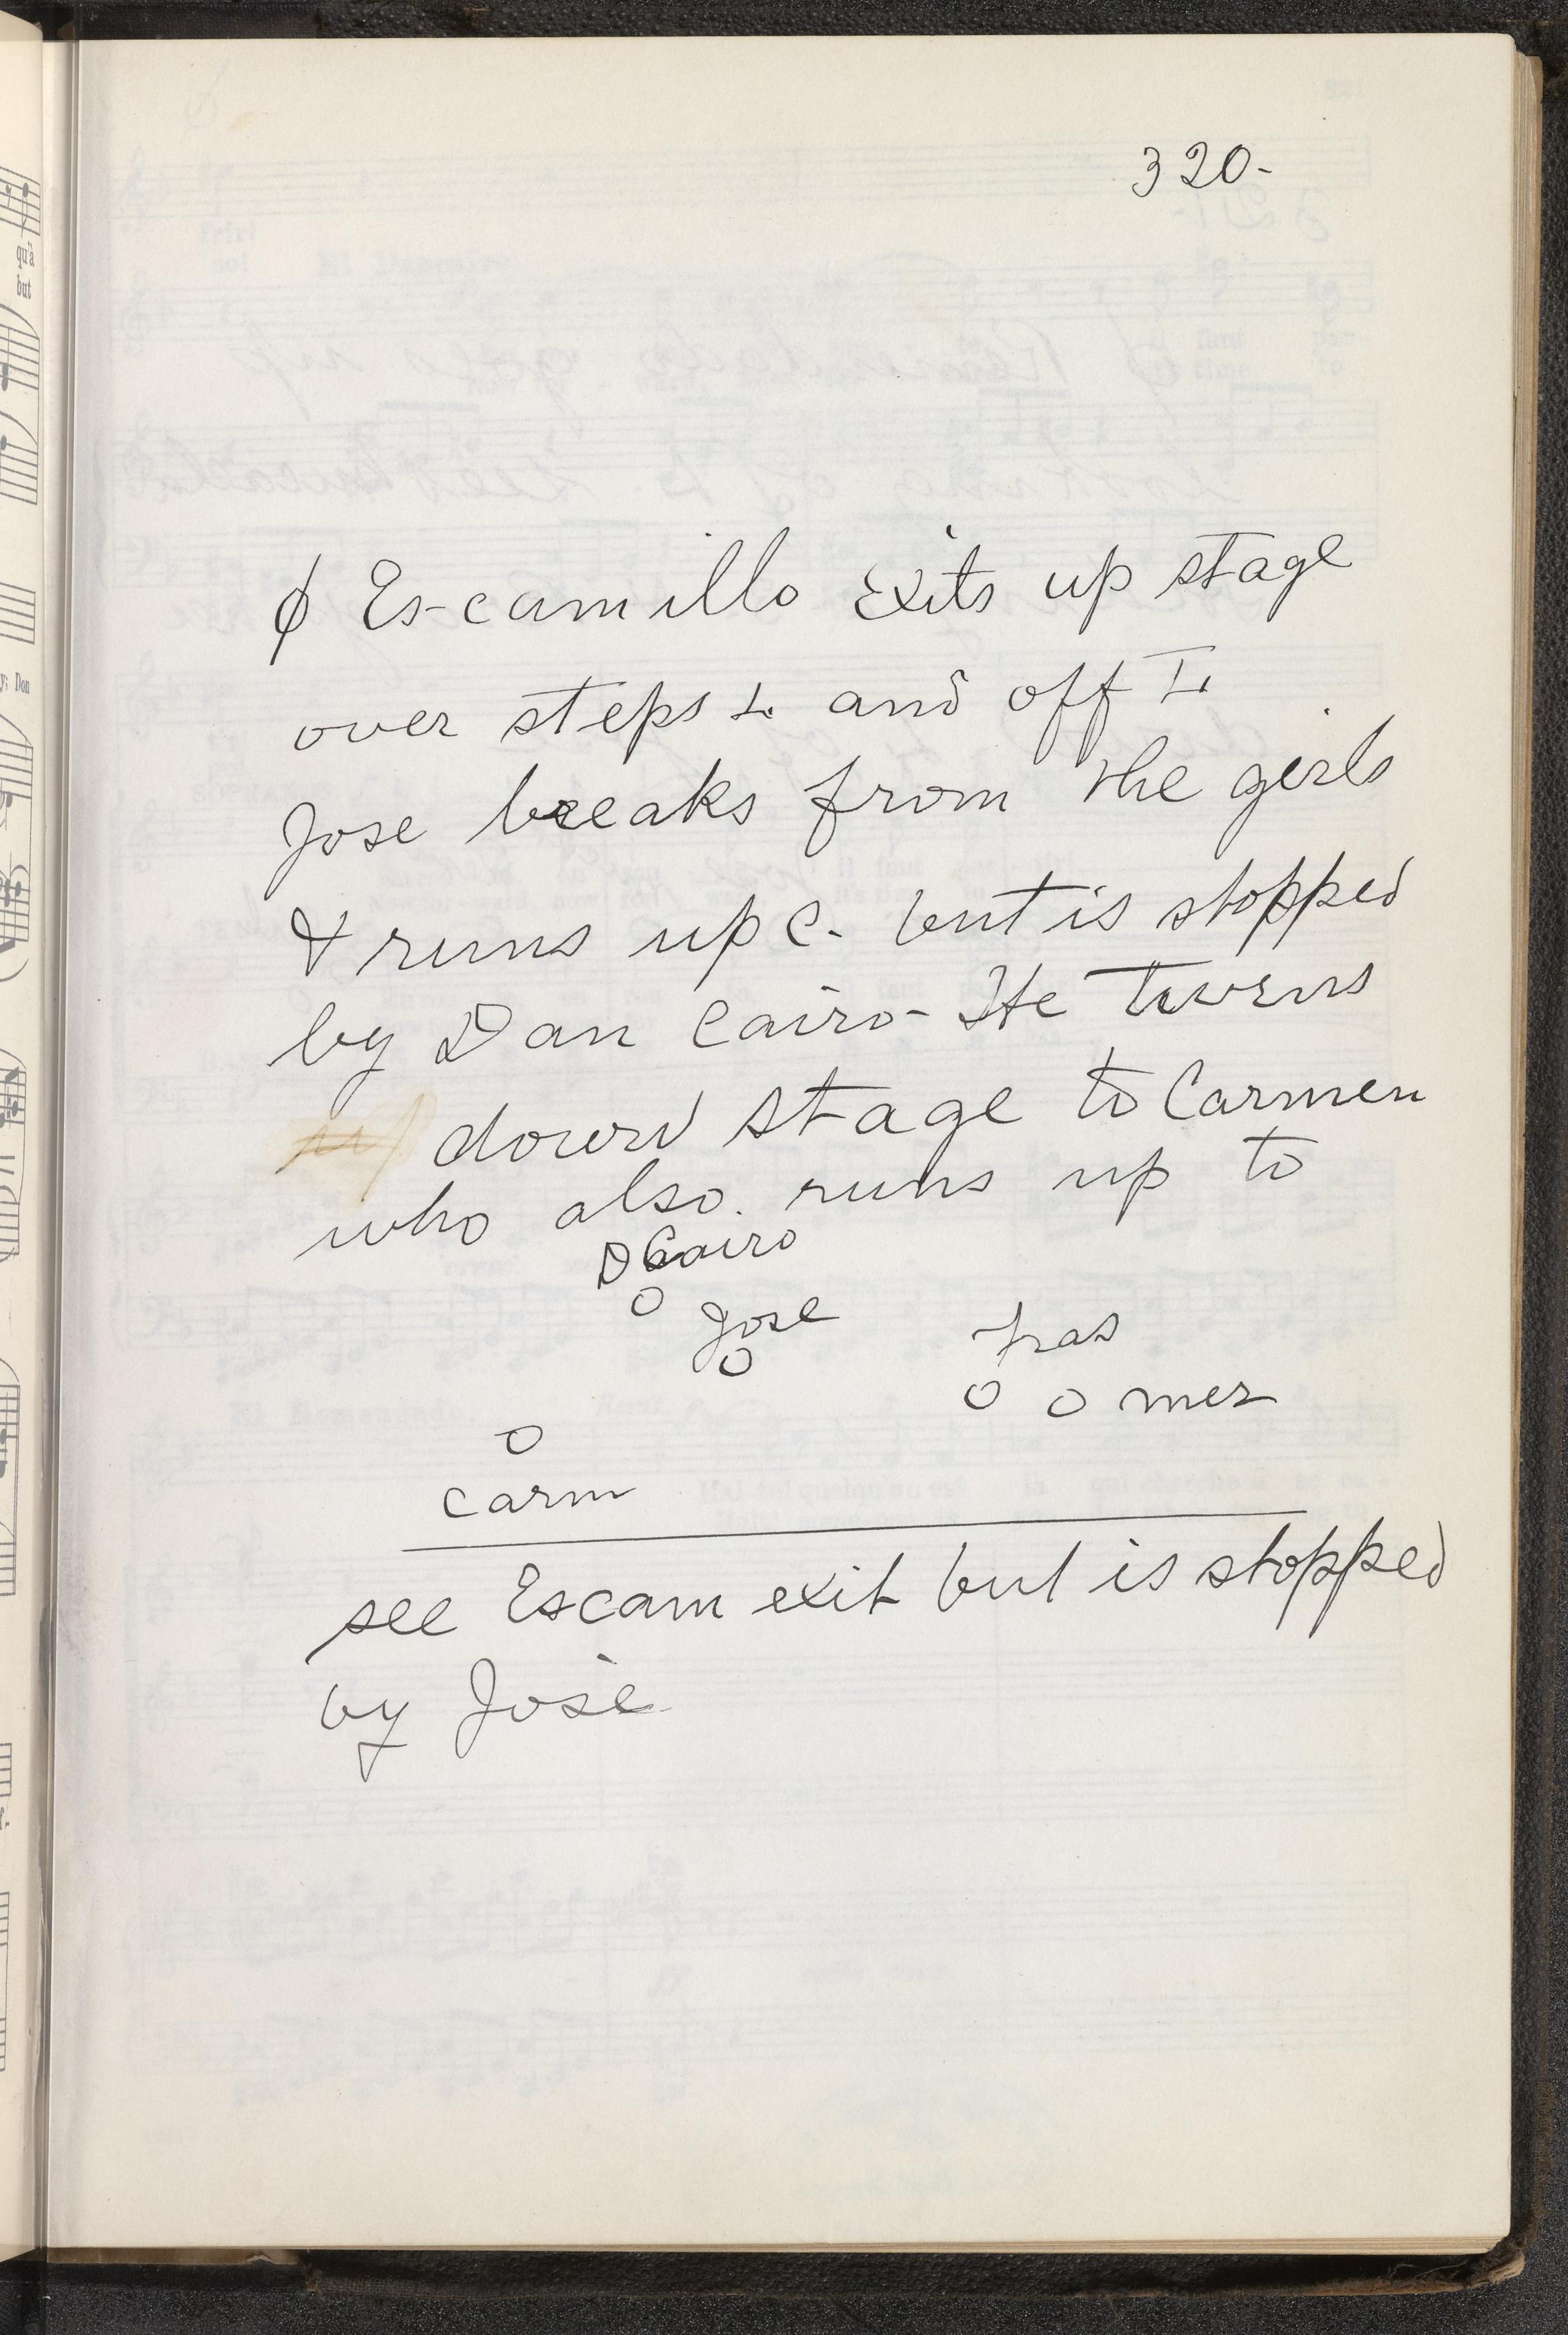 320-
ϕ Es-camillo Exits up stage
over steps L. and off L
Jose breaks from the girls
& runs up C. but is stopped
by Dan Cairo - He turns
down stage to Carmen
who also. runs up to
D Cairo
Jose
fras
mer
carm
see Escam exit but is stopped
by José